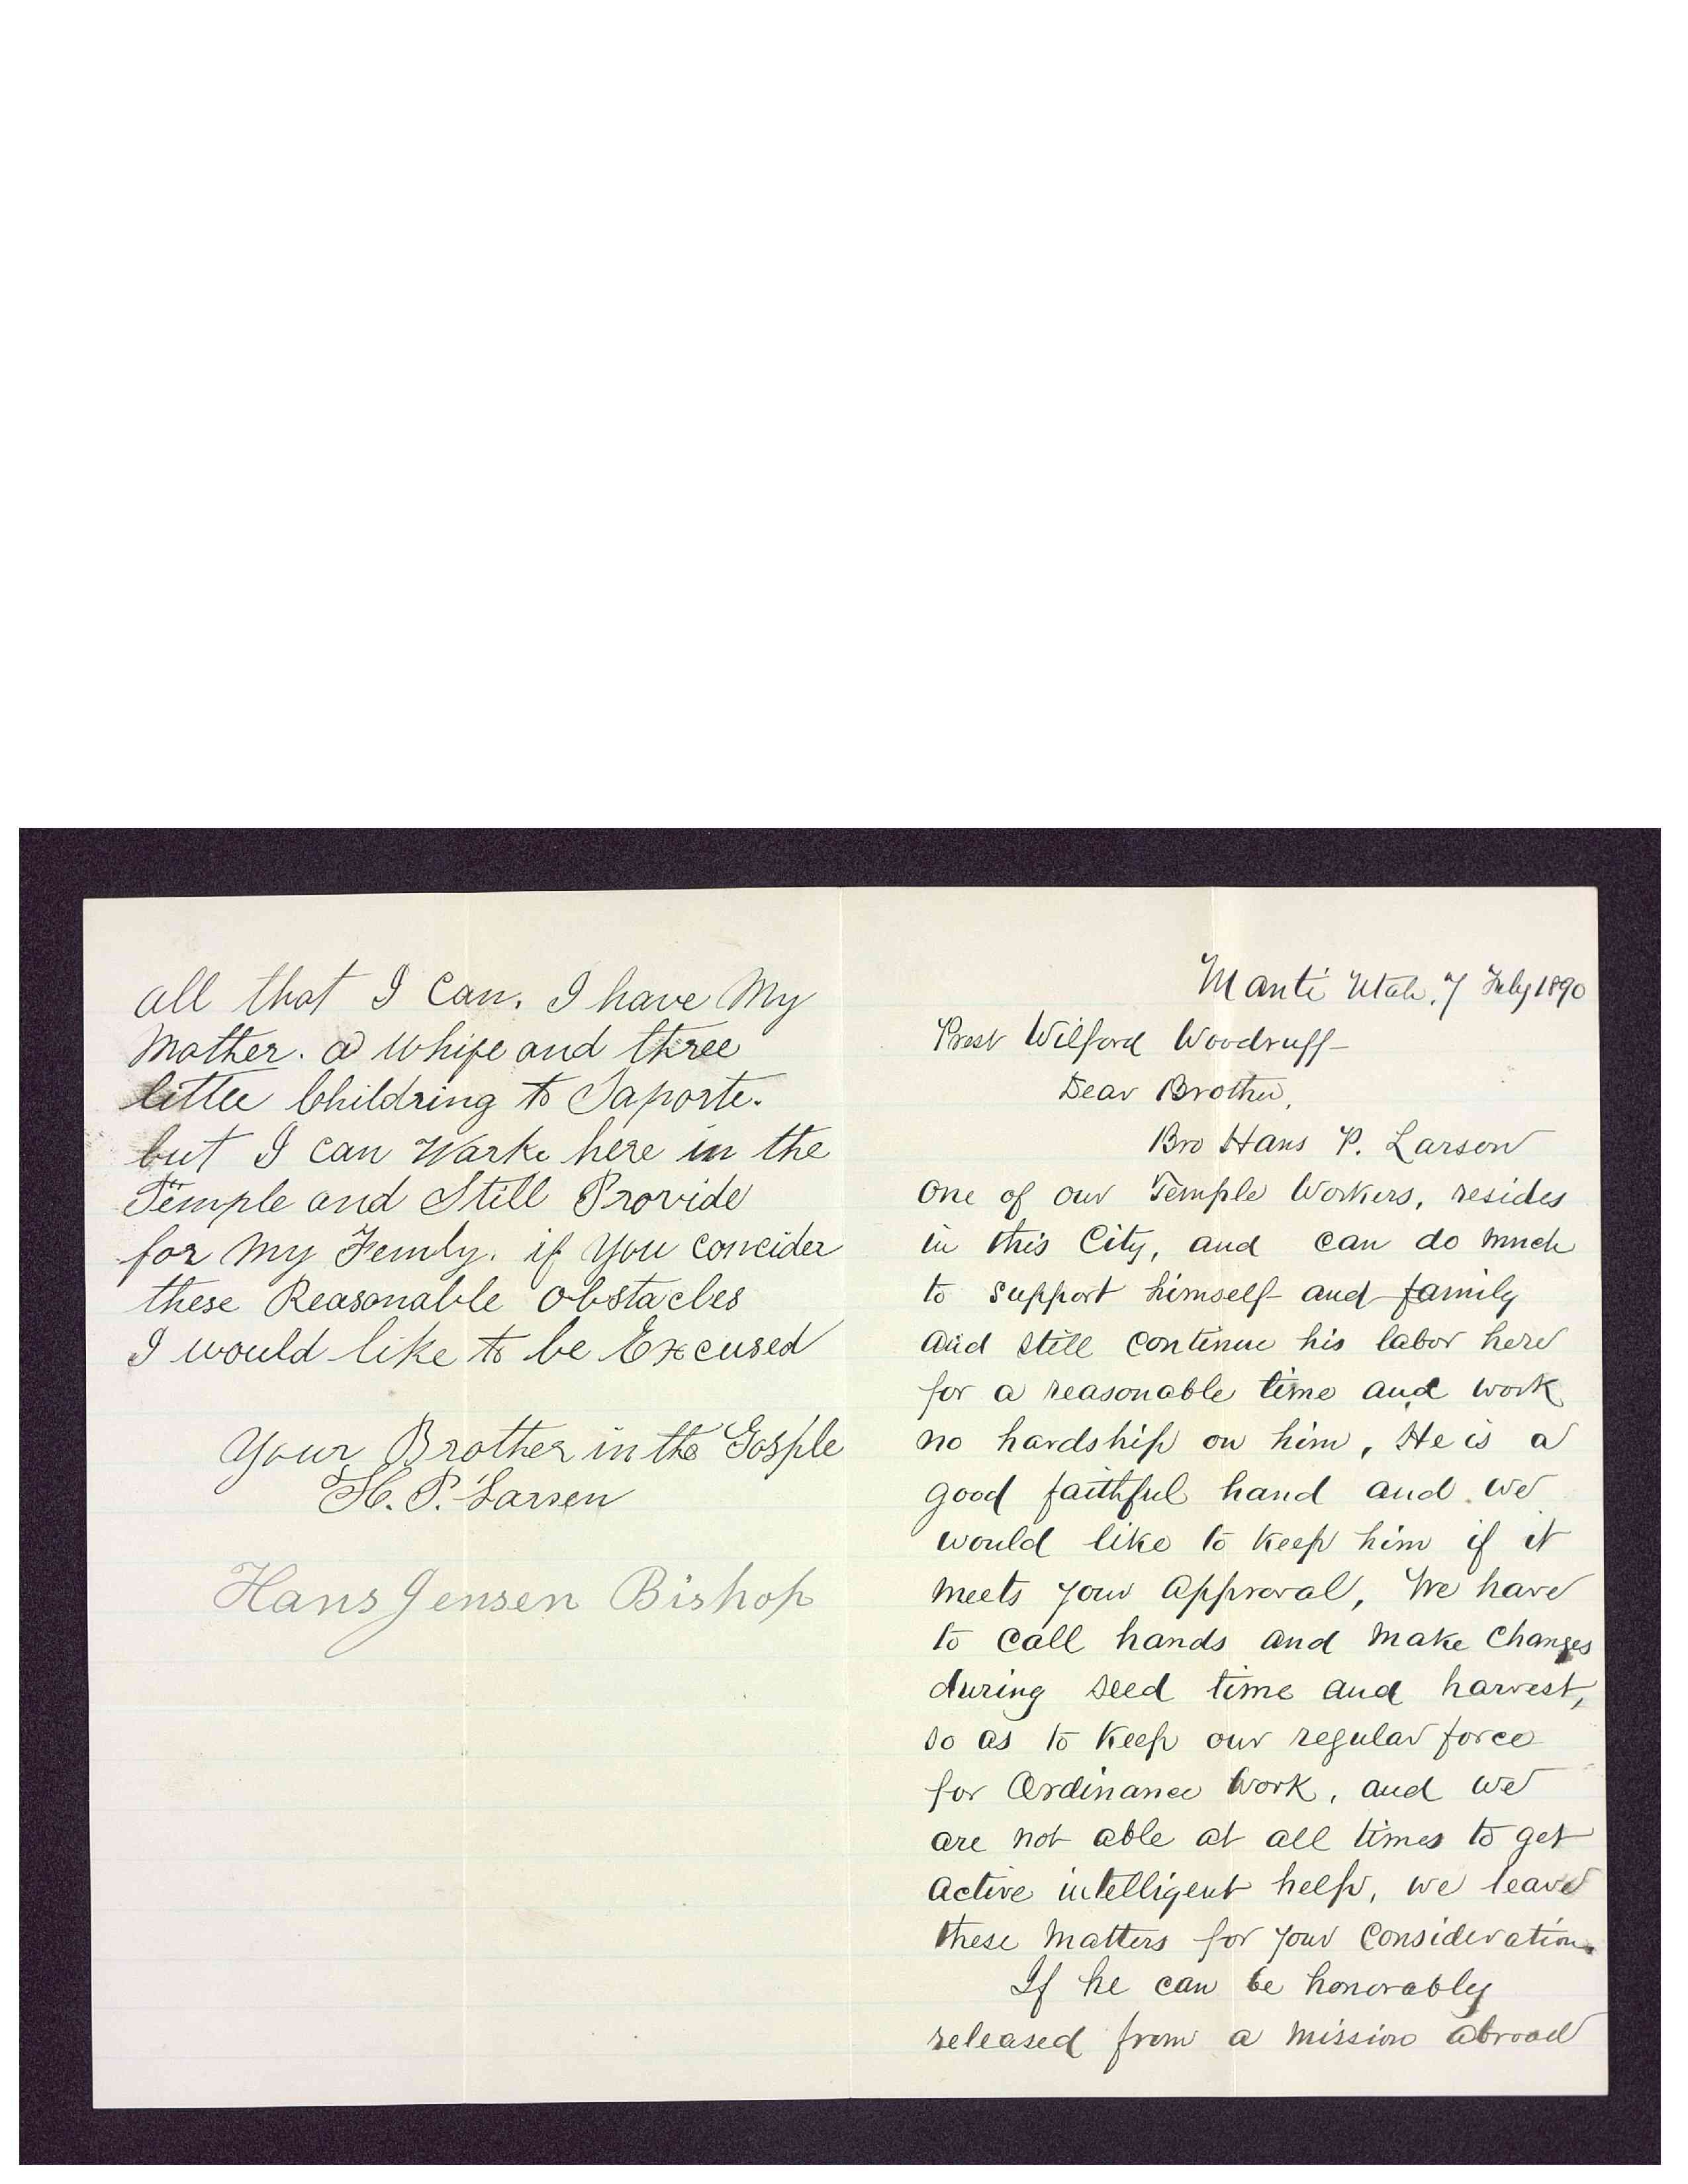 all that I Can. I have My
Mother. a Whife and three
little Children̄g to Saporte.
but I can Warke here in the
Temple and Still Provide
for My Femly. if you concider
these Reasonable obstacles
I would like to be Excused
Your Brother in the Gosple
H. P. Larsen
Hans Jensen Bishop
Manti Utah, 7 Feby 1890
Prest Wilford Woodruff
Dear Brother,
Bro Hans P. Larson
One of our Temple Workers, resides
in this City, and can do much
to support himself and family
and still continue his labor here
for a reasonable time and work
no hardship on him, He is a
good faithful hand and we
would like to keep him if it
meets your approval, We have
to call hands and make changes
during seed time and harvest,
so as to keep our regular force
for Ordinance Work, and we
are not able at all times to get
active intelligent help, we leave
these matters for your consideration.
If he can be honorably
released from a mission abroad